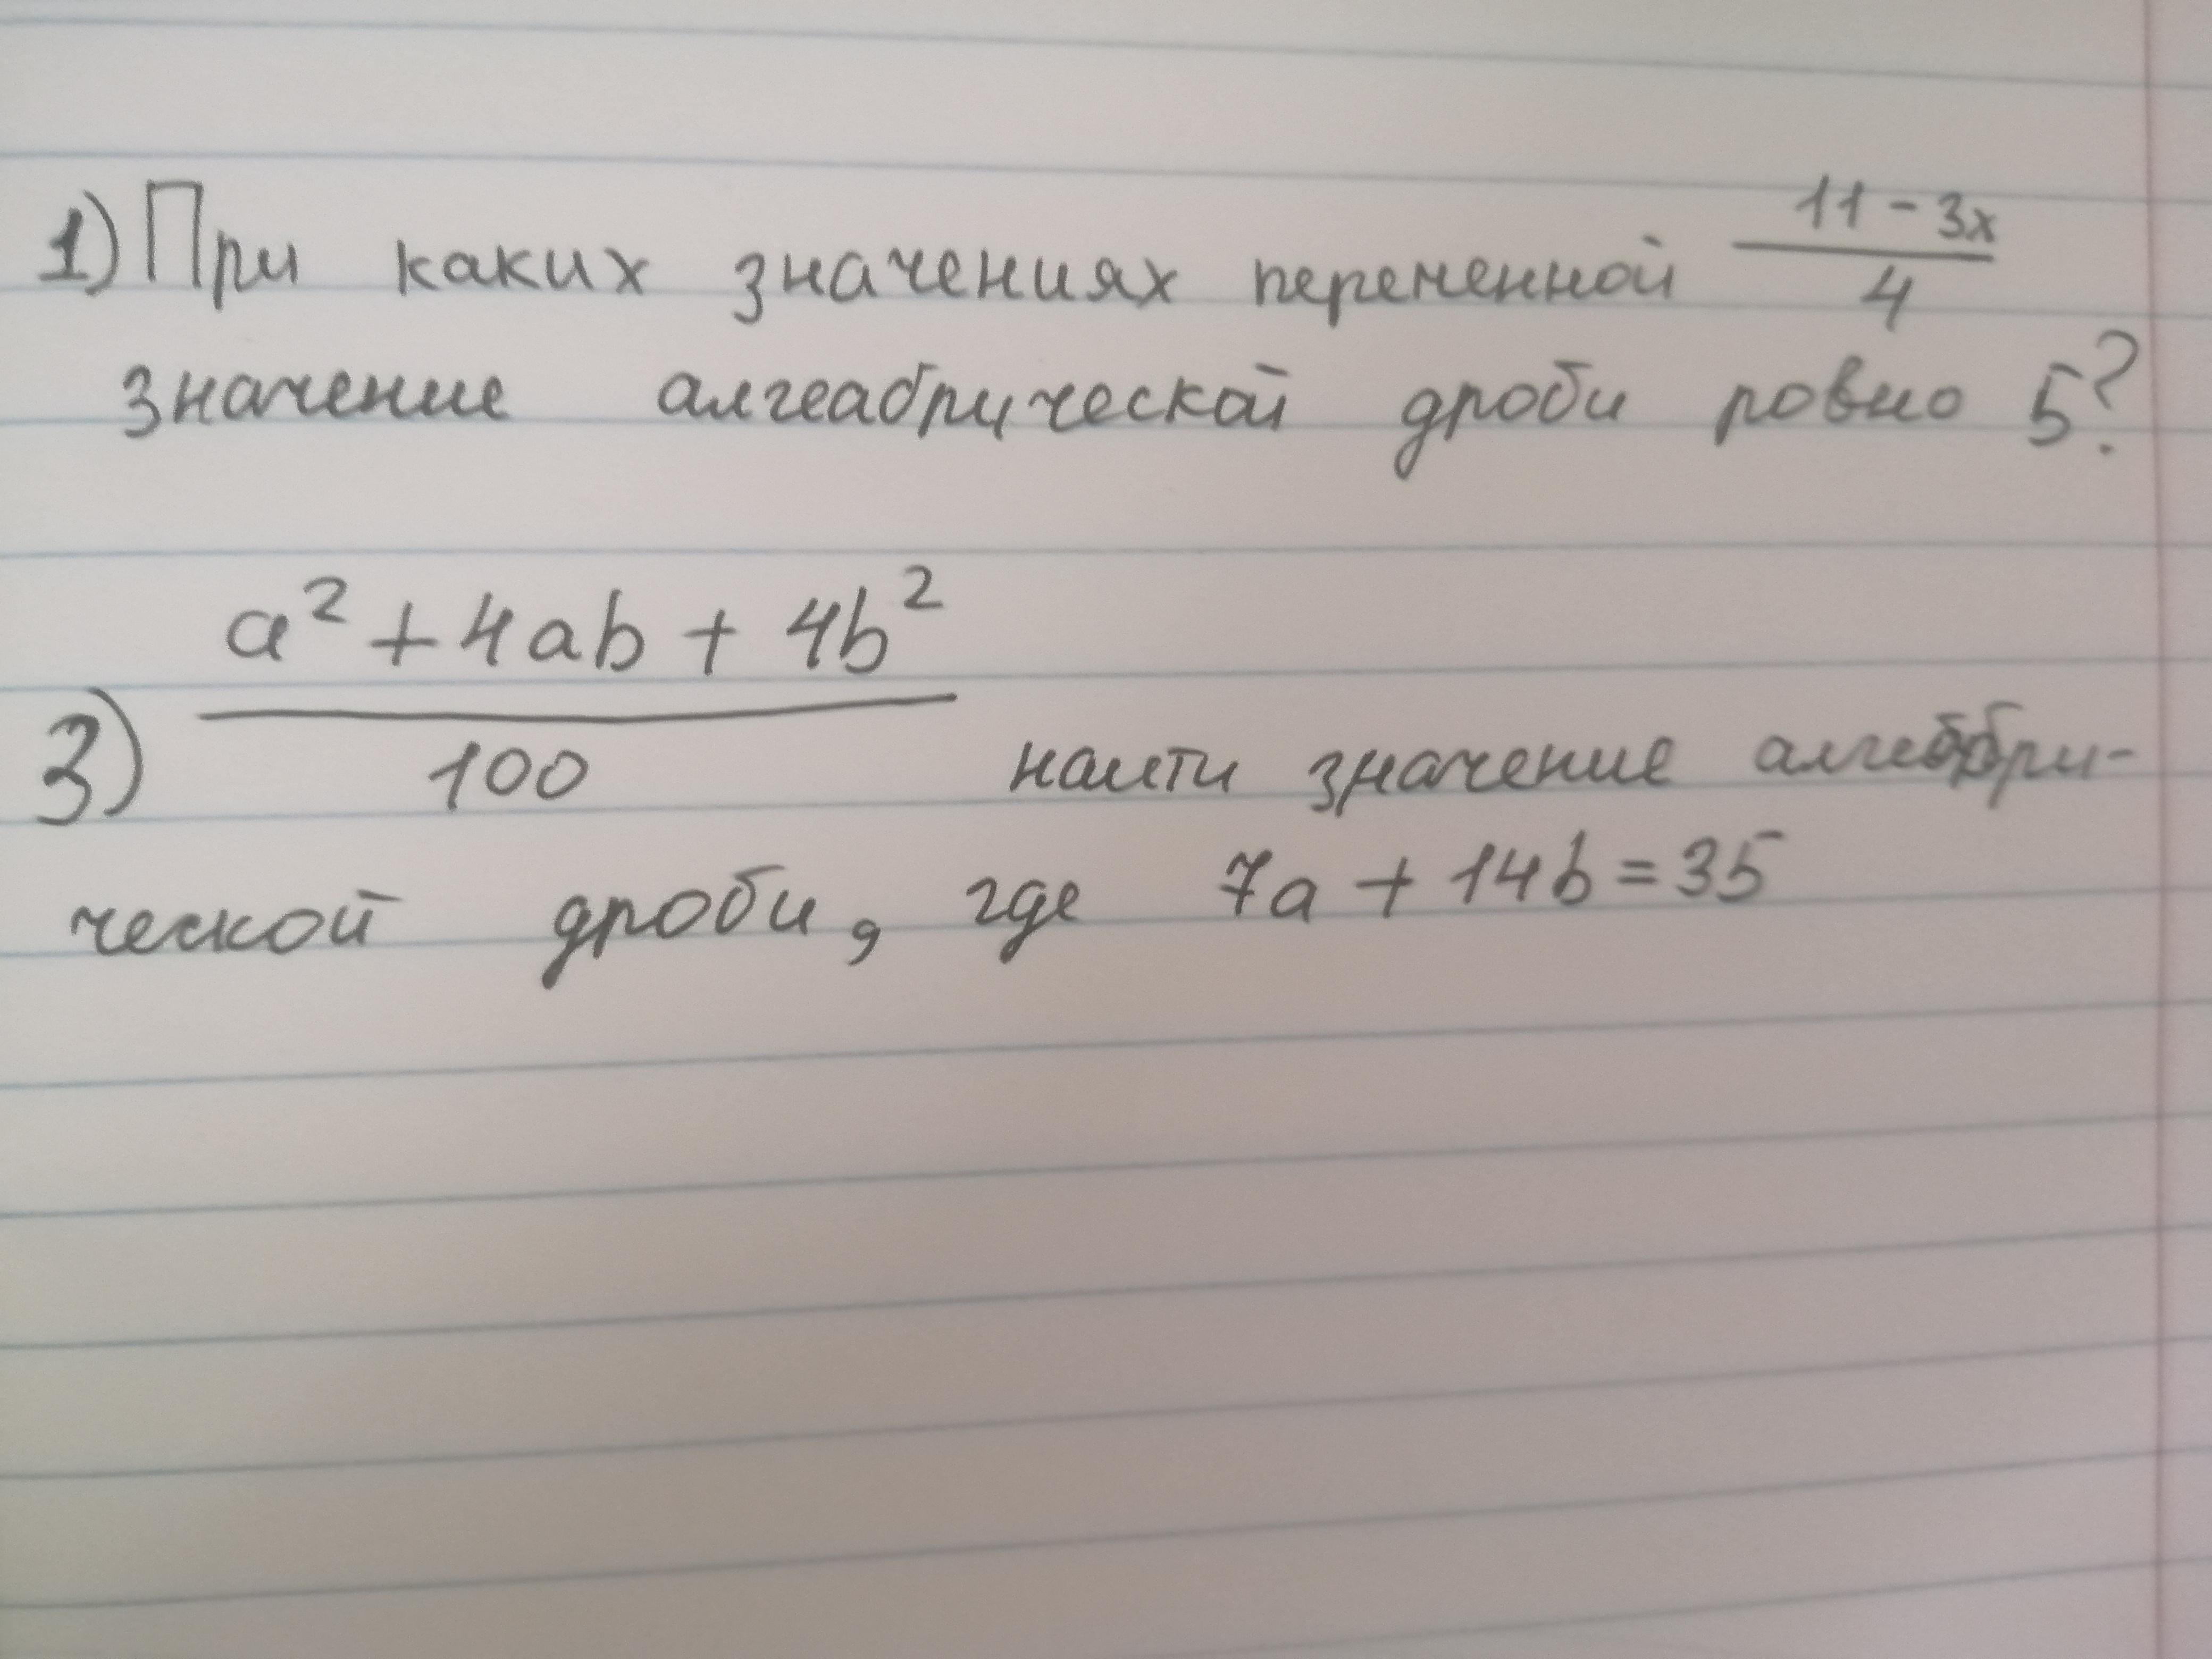 1) При каких значениях переменной \frac{11-3x}{4}
значение алгеабрической дроби ровно 5?
3) \frac{a² + 4ab + 4b²}{100} наити значение алгебри-
ческой дроби, где 7a + 14b = 35